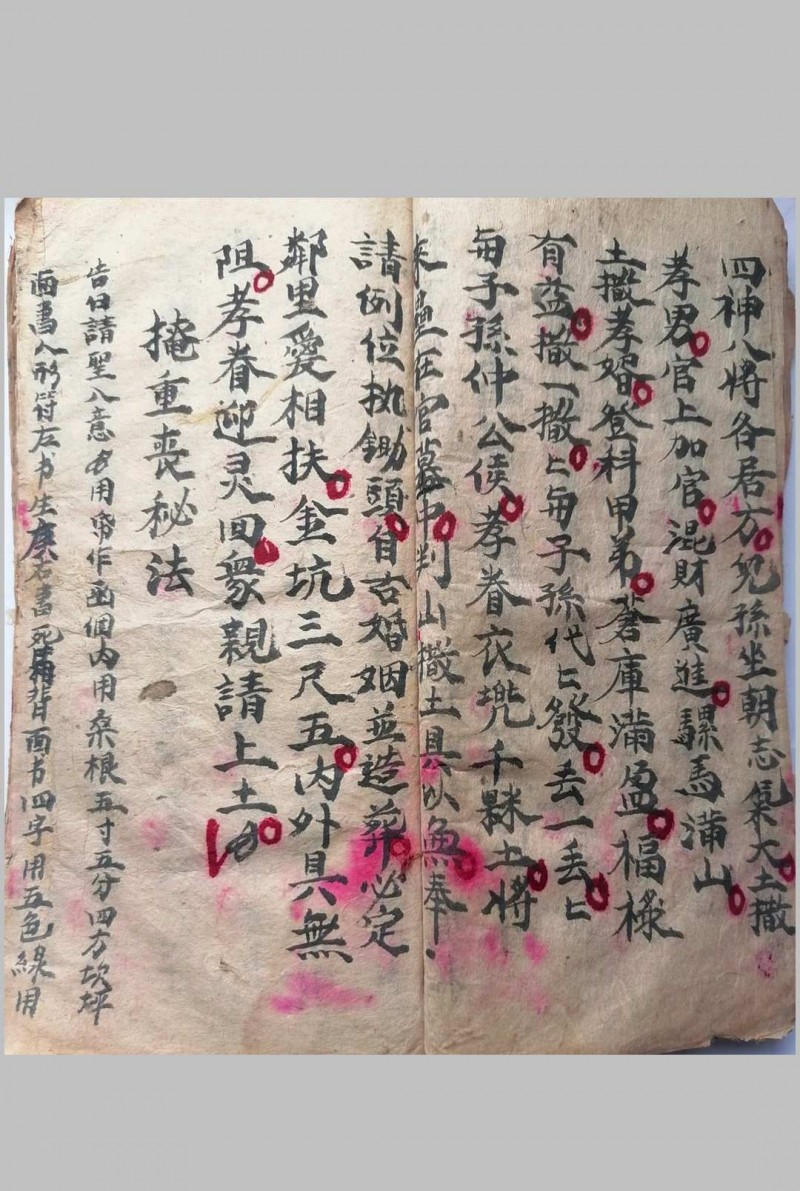 四神八将各居方兒孫坐朝志氣大土撒
孝男官上加官混財廣進騾馬滿山
土撒孝婿登科甲弟蒼庫滿盈福祿
有益撒一撒匕毎子孫代匕發丢一丢匕
毎子孫仲公侯孝眷衣兠千縣土將
在官墓中判山撒土具以無奉
請例位执鋤頭自古婚姻並造葬必定
鄰里愛相扶金坑三尺五内外具無
阻孝眷迎灵回衆親請上土
掩重喪秘法
告曰請聖八意方用帋作函個内用桑根五寸五分四方坎坪
面書人形符左书生庚右書死背面书四字用五色線用